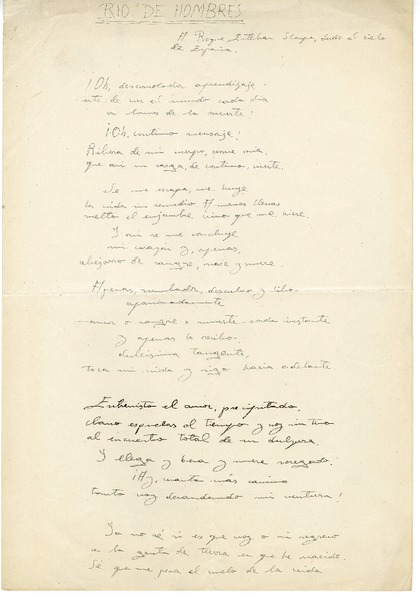 RIO DE HOMBRES
A Roque Esteban Scarpa, desde el cielo
de España.
¡Oh, desconsolada aprendizaje
este de ver el mundo cada día
a lomos de la muerte!
¡Oh, continuo mensaje!
Ribera de mi cuerpo, como mía,
que a mi carga, de continuo, vierte.
Se me escapa, me huye
la vida sin remedio A manos llenas
suelto el enjambre vivo que me hiere.
Y así se me concluye
mi corazón y, apenas,
abejorro de sangre, nace y muere
Apenas, zumbador, descubro y libo
apasionadamente
amor o sangre o muerte cada instante
y apenas lo recibo
dulcísima tangente,
toca mi vida y sigo hacia adelante
Entrevisto el amor, precipitado,
clavo espuelas al tiempo y voy
al encuentro total de mi dulzura.
Y llega y besa y muere sosegado.
¡Ay, cuanto más camino
tanto voy demandando mi ventura!
Ya no sé si es que voy o si regreso
a la gota de tierra en que he nacido.
Sé que me pesa el vuelo de la vida